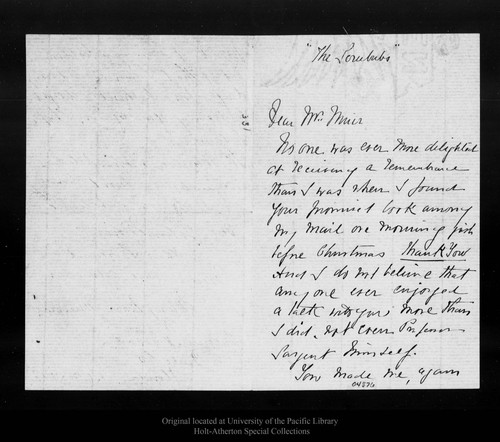 "The Scrububs"
Dear Mr. Muir
No one was ever more delighted
at receiving a remembrance
than I was when I found
your promised book among
my mail one morning just
before Christmas thank you
And I do not believe that
any one ever enjoyed
a talk with you, more than
I did, not even Professor
Sargent himself.
You made me, again
331
04576
Original located at University of the Pacific Library
Holt-Atherton Special Collections